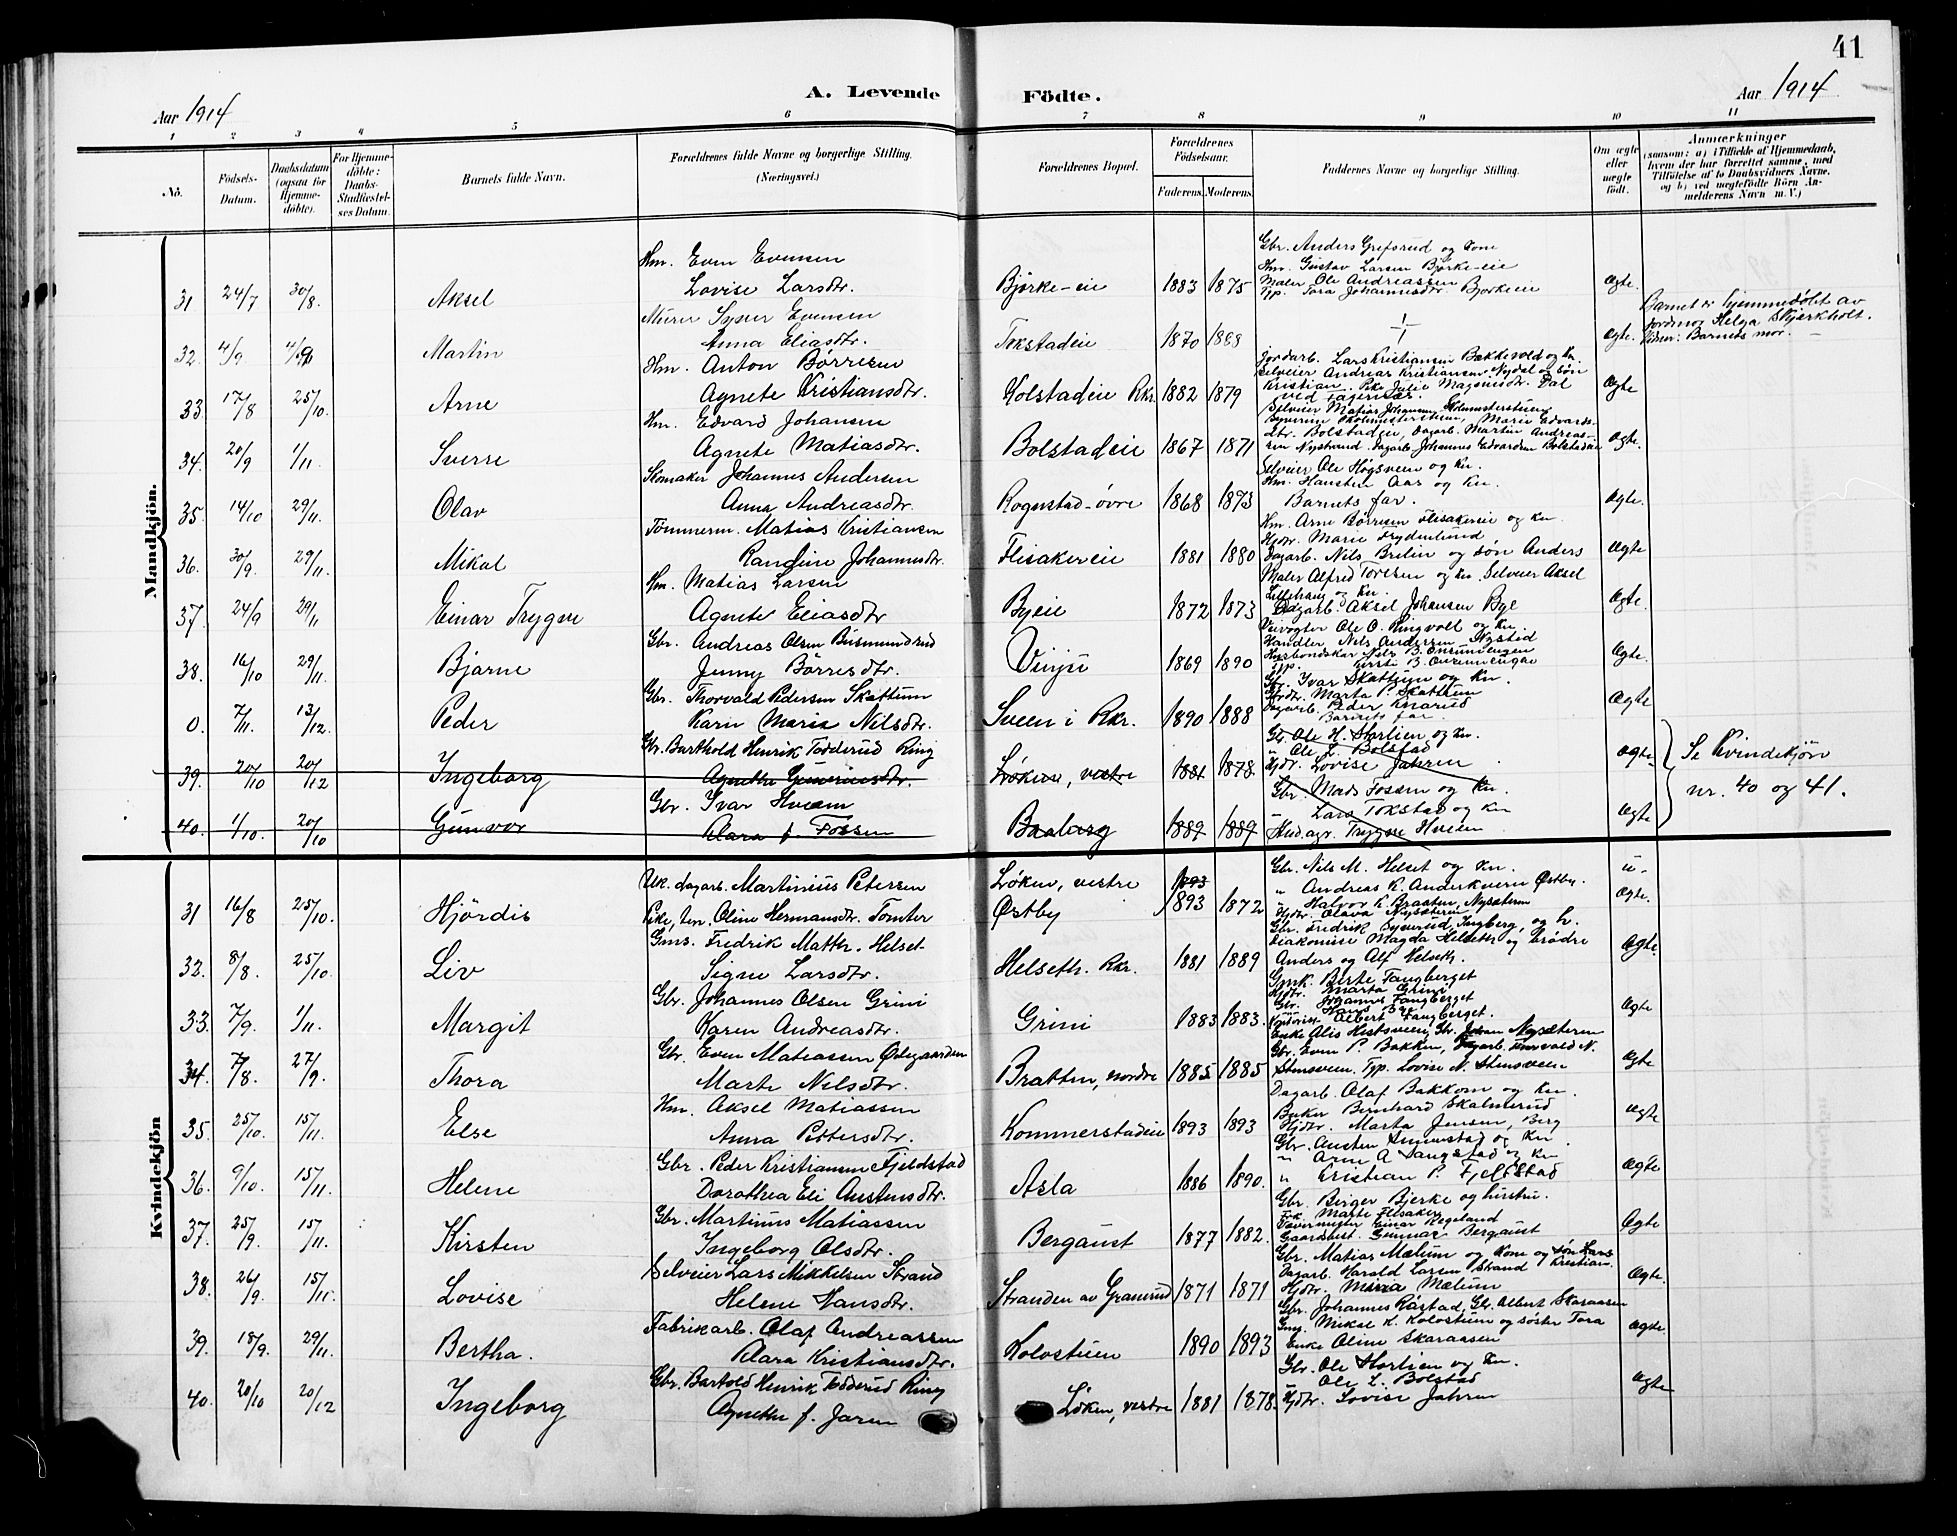 41
Aar 1914
A. Levende
Födte.
Aar 1914
1 2 3 4 5 6 7 8 9 10 11
No.
Födsels-Datum.
Daabsdatum (ogsaa for Hjemmedöbte).
For Hjemmedöbte: Daabs-Stadfæstelses Datum.
Barnets fulde Navn.
Forældrenes fulde Navne og borgerlige Stilling. (Næringsvei.)
Forældrenes Bopæl.
Forældrenes Födselsaar.
Faderens.
Moderens.
Faddernes Navne og borgerlige Stilling.
Om ægte eller uægte født.
Anmærkninger
(saasom: a) i Tilfælde af Hjemmedaab, hvem der har forrettet samme, med Tilföielse af to Daabsvidners Navne, og b) ved uægtefödte Börn Anmelderens Navn m. V.)
Mandkjön.
31 24/7 30/8. Aksel Hm. Even Evensen Lovise Larsdtr. Bjørke-eie 1883 1875 Gbr. Anders Grefsrud og kone Hm. Gustav Larsen Bjørke-eie Maler Ole Andreassen Tjp. Tora Johannesdtr. Bjørkeeie Ægte.
32. 4/9 4/9 Martin Murer Syver Evensen Anna Eliasdtr. Tokstadeie 1870 1868 Ægte. Barnet er hjemmedøbt av jordmor Helga Skjærkholt. Vidner: Barnets mor.
33. 17/8 25/10. Arne Hm. Anton Børresen Agnete Kristiansdtr. Kolstadeie Rkr. 1882 1879 Jordarb. Lars Kristiansen Bækkevold og kn. Selveier Andreas Kristiansen Nydal og søn Kristian. Pike Julie Magnusdtr. Dal Ægte
34. 20/9 1/11. Sverre Hm. Edvard Johansen Agnete Matiasdtr. Bolstadeie 1867 1871 Selveier Matias Johansen Skolmesterstuen Marie Edvardsdtr. Bolstadeie, Dagarb. Martin Andreassen Nystrand. Dagarb. Johannes Edvardsen Bolstadeie Ægte.
35. 14/10 29/11. Olav Skomaker Johannes Andersen Anna Andreasdtr. Rognstad-øvre 1868 1873 Selveier Ole Høgsveen og kn. Hm. Hansten Aas og kn. Barnets far. Ægte.
36. 30/9. 29/11. Mikal Tømmerm. Matias Kristiansen Randine Johannesdtr. Flisakereie 1881 1880 Hm. Arne Børresen Flisakereie og kn. Hjdtr. Marie Frydenlund Dagarb. Nils Brelin og søn Anders Ægte
37. 24/9 29/11 Einar Trygve Hm. Matias Larsen Agnete Eliasdtr. Byeie 1872 1873 Maler Alfred Toresen og kn. Selveier Aksel Lillehaug og kn. Dagarb. Aksel Johansen Bye Ægte.
38. 16/10 29/11. Bjarne Gbr. Andreas Olsen Busmundrud Jenny Børresdtr. Vinju 1869 1890 Veivogter Ole O. Ringvoll og kn. Handler Nils Andersen Nystid Ægte.
0. 7/11. 13/12. Peder Gbr. Thorvald Pedersen Skattum Karen Maria Nilsdtr. Sveen i Rkr. 1890 1888 Gbr. Ivar Skattum og kn. Hjdtr. Marta P. Skattum Dagarb. Peder Knarud Barnets far. Ægte
39. 20/10 20/12 Ingeborg Gbr. Barthold Henrik Todderud Ring Agnethe Gunerusdtr. Løken, vestre 1881 1878. Gbr. Ole H. Storlien og kn. " Ole L. Bolstad Hjdtr. Lovise Jahren Ægte
40. 1/10. 20/10 Gunvor Gbr. Ivar Hveem Clara f. Fossen Braberg 1889 1889 Gbr. Mads Fossen og kn. " Lars Tokstad og kn Stud. agr. Trygve Hveem Ægte
Se Kvindekjön nr. 40 og 41.
Kvindekjön
31 16/8 25/10. Hjördis Uk. dagarb. Martinius Petersen Pike, ten. Oline Hermansdtr. Tomter Løken, vestre Østby 1893 1893 1872 Gbr. Nils M. Helset og kn. " Andreas K. Anderkvern Østby. " Halvor K. Braaten, Nysæteren Hjdtr. Olava Nysæteren u. Ægte.
32. 8/8. 25/10. Liv Gms. Fredrik Matth. Helset Signe Larsdtr. Helseth. Rkr. 1881 1889 Gbr. Fredrik Byserud, Ingberg, og h. Diakonisse Magda Helseth og brødre Anders og Alf Helseth. Ægte.
33. 7/9. 1/11. Margit Gbr. Johannes Olsen Grini Karen Andreasdtr. Grini 1883 1883. Gmk. Berte Fangberget Hjdtr. Marta Grini Gbr. Johannes Fangberget Kontorist Albert Fangberget. Ægte
34. 7/8. 27/9. Thora Gbr. Even Matiassen Ødegaarden Marte Nilsdtr. Bratten, nordre 1885 1885 Enke Alis Hestsveen, Gbr. Johan Nysæteren Gbr. Even P. Bakken, Dagarb. Torvald N. Stensveen. Tjp. Lovise N. Stensveen Ægte
35. 25/10. 15/11. Else Hm. Aksel Matiassen Anna Pettersdtr. Kommerstadeie 1893 1893 Dagarb. Olaf Bakkom og kn. Baker Bernhard Skalmerud Hjdtr. Marta Jensen, Berg Ægte
36. 9/10. 15/11. Helene Gbr. Peder Kristiansen Fjeldstad Dorothea Eli Austensdtr. Asla 1886 1890. Gbr. Austen Simenstad og kn " Arne A Langstad og kn " Kristian P. Fjeldstad Ægte
37. 25/9 15/11. Kirsten Gbr. Martinus Matiassen Ingeborg Olsdtr. Bergaust 1877 1882. Gbr. Birger Bjerke og hustru. Frk. Marte Flisaker Gaardbest. Gunnar Bergaust Ægte
38. 26/9. 15/11. Lovise Selveier Lars Mikkelsen Strand Helene Hansdtr. Stranden av Granerud 1871 1871 Gbr. Matias Mælum og kone og søn Hans Dagarb. Harald Larsen Strand Kristian. Hjdtr. Maria Mælum Ægte.
39. 18/9. 29/11. Bertha. Fabrikarb. Olaf Andreassen Klara Kristiansdtr. Kolostuen 1890 1893 Gbr. Johannes Røstad, Gbr. Albert Skaraasen Gms. Mikal K. Kolostuen og søster Tora Enke Oline Skaraasen Ægte.
40. 20/10 20/12 Ingeborg Gbr. Bartold Henrik Todderud Ring Agnethe f. Jaren Løken, vestre 1881 1878. Gbr. Ole Storlien og kn. " Ole L. Bolstad Hjdtr. Lovise Jahren Ægte